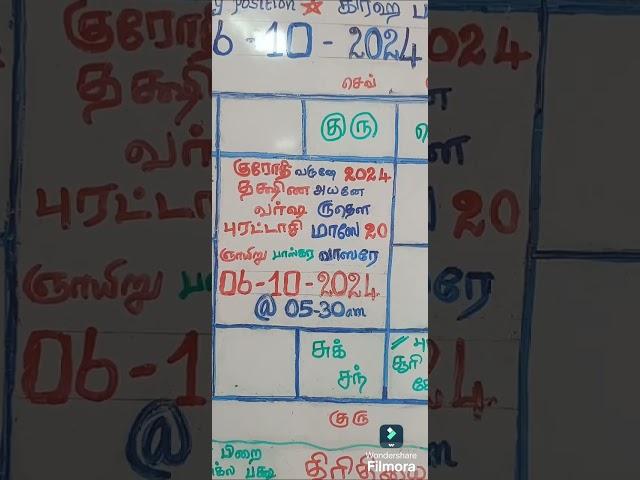 position ☆ கிரஹ
6 - 10 - 2024
செவ்
குரு
குரோதி வருஷே 2024
தக்ஷிண அயனே
வர்ஷ ருதௌ
புரட்டாசி மாஸே 20
ஞாயிறு பாஸ்கர வாஸரே
06-10-2024
@ 05-30am
சுக்
சந்
சூரி
குரு
பிறை
பக்ஷ
Wondershare
Filmora